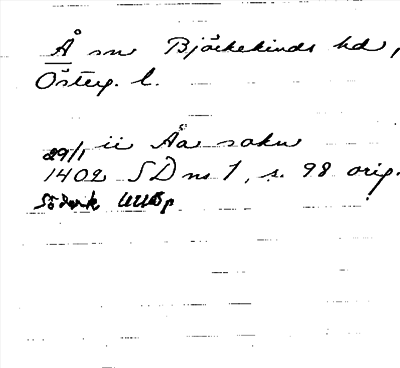 Å sn Björkekinds hd,
Österg. l.
ii Åa sokn
29/1
1402 SD ns 1, s. 98 orig.